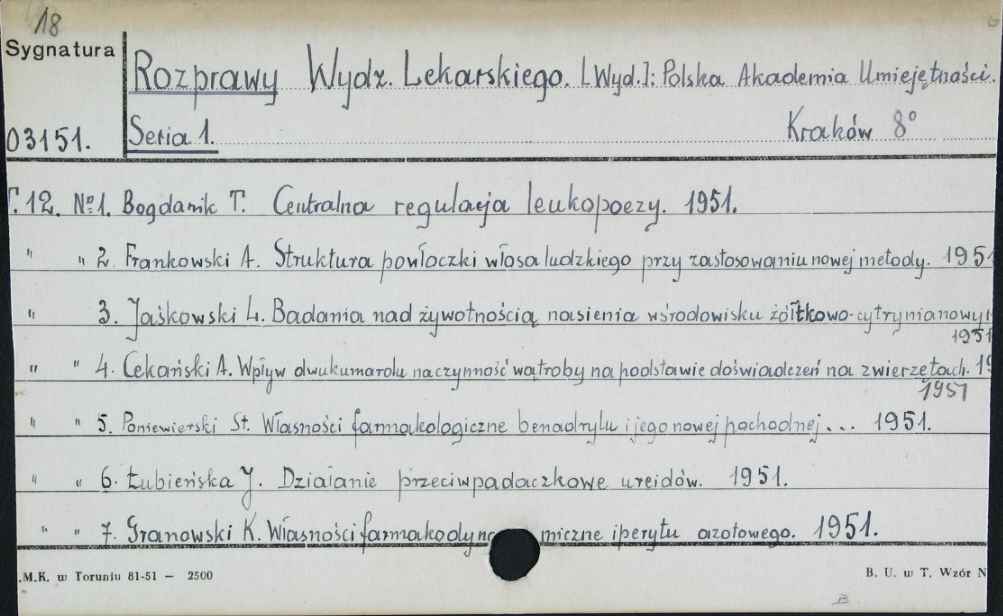 18
Sygnatura
Rozprawy Wydz. Lekarskiego. [Wyd.]: Polska Akademia Umiejętności.
03151.
Seria 1. Kraków 8°
T.12. № 1. Bogdanik T. Centralna regulacja leukopoezy. 1951.
" " 2. Frankowski A. Struktura powłoczki włosa ludzkiego przy zastosowaniu nowej metody. 1951
" 3. Jaśkowski L. Badania nad żywotnością nasienia w środowisku żółtkowo-cytrynianowym
1951
" " 4. Cekański A. Wpływ dwukumarolu na czynność wątroby na podstawie doświadczeń na zwierzętach. 19
1951
" " 5. Poniewierski St. Własności farmakologiczne benadrylu i jego nowej pochodnej... 1951.
" " 6. Łubieńska J. Działanie przeciwpadaczkowe ureidów. 1951.
" " 7. Granowski K. Własności farmakodynamiczne iperytu azotowego. 1951.
.M.K. w Toruniu 81-51 — 2500
B. U. w T. Wzór N
B